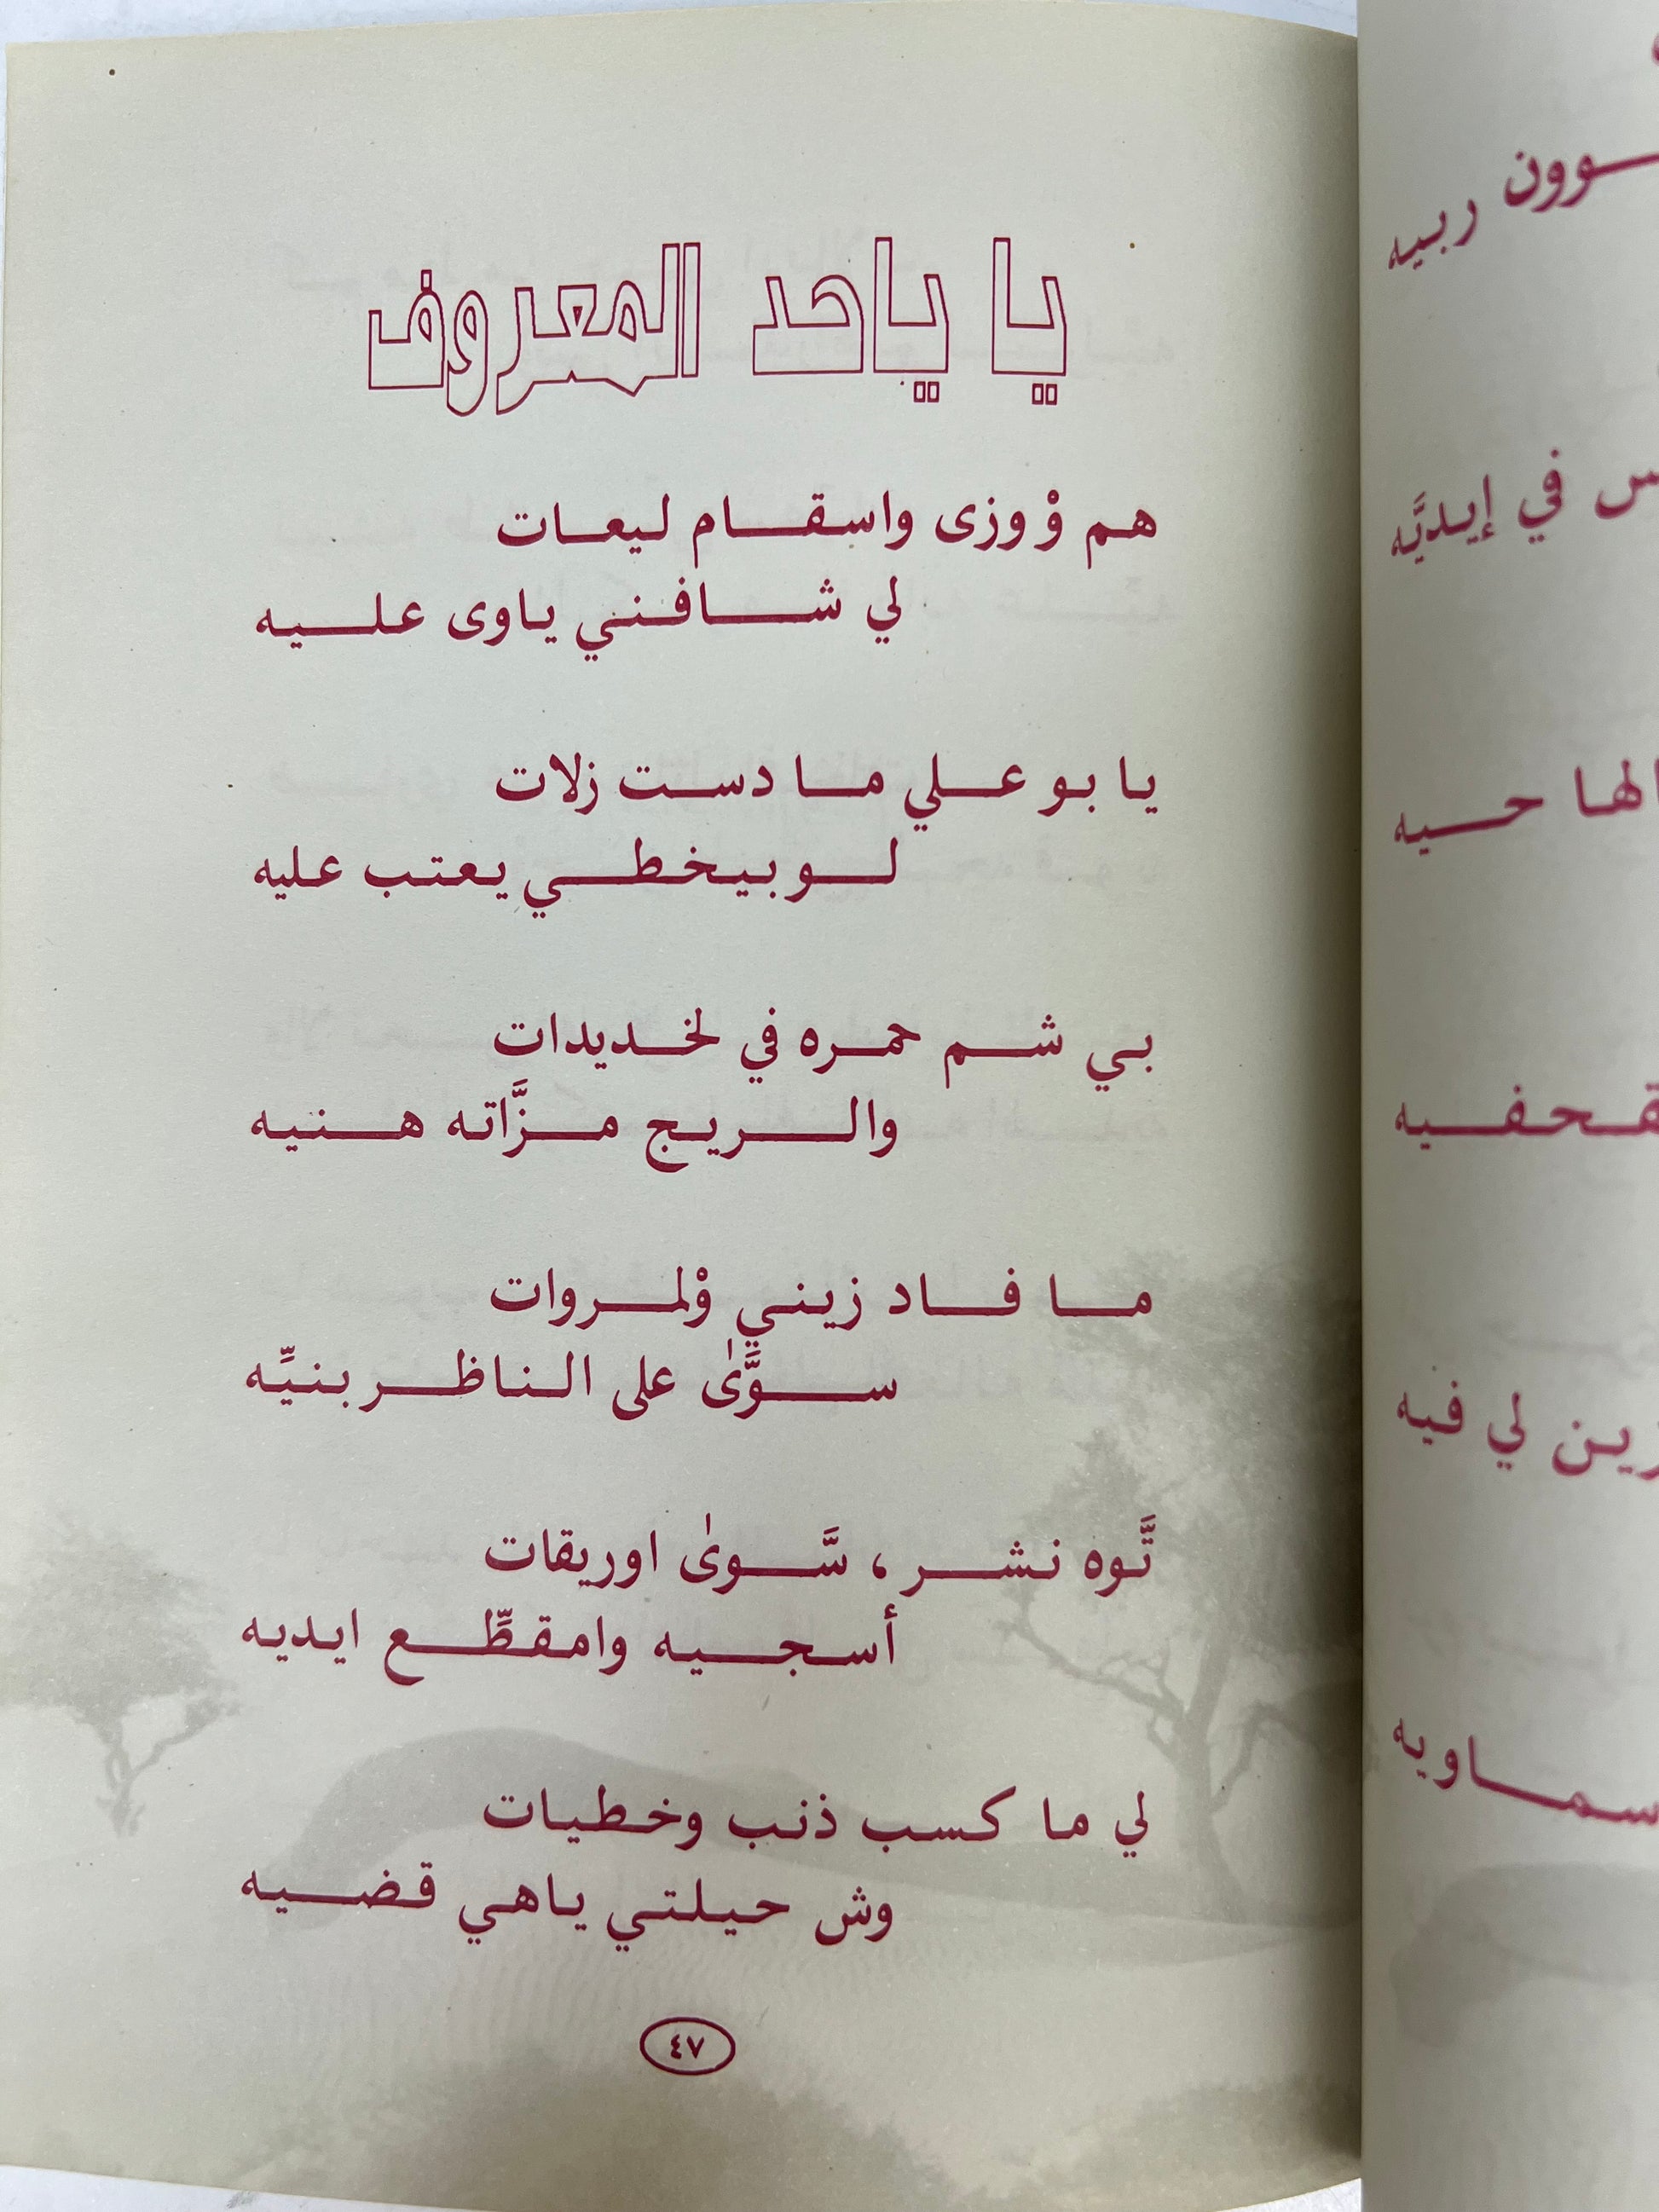 يا ياحد المعروف
هم وْ وزى واسقام ليعات
لي شافني ياوى عليه
يا بو علي ما دست زلات
لو بيخطي يعتب عليه
بي شم حمره في لخديدات
والريج مزَّاته هنيه
ما فاد زيني وْلمروات
سوَّىٰ على الناظر بنيِّه
تَّوه نشر ، سَّوىٰ اوريقات
أسجيه وامقطِّع ايديه
لي ما كسب ذنب وخطيات
وش حيلتي ياهي قضيه
٤٧
وون ربيه
س في إيديَّه
الها حيه
قحفيه
زين لي فيه
سماويه